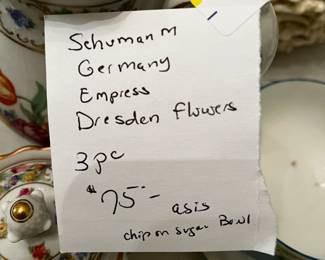 Schuman M
Germany
Empress
Dresden Flowers
3 pc
$75.- asis
chip on sugar Bowl